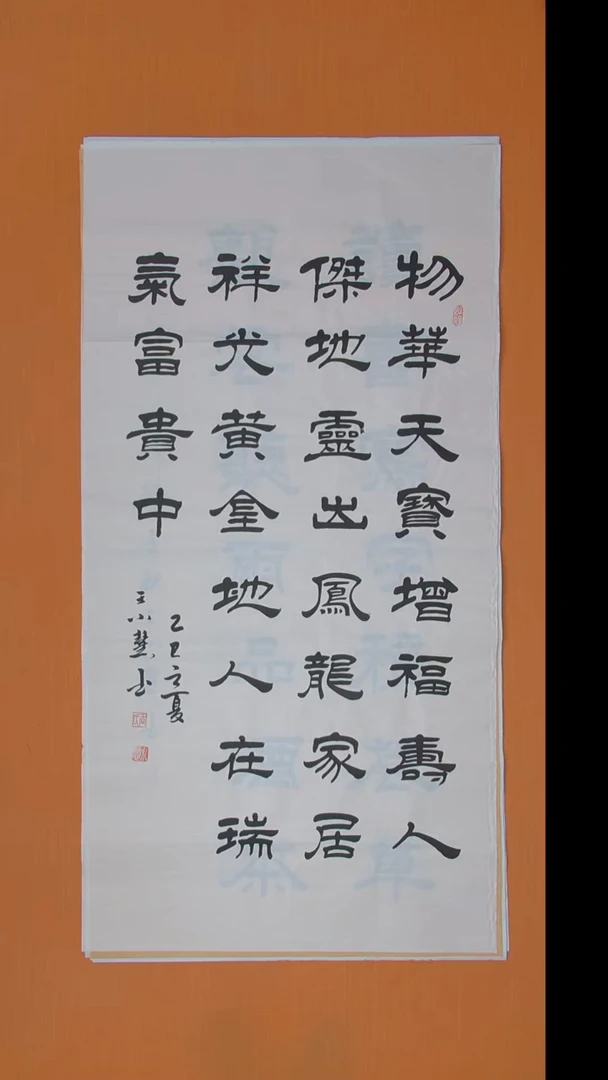 物華天寶增福壽人
傑地靈出鳳龍家居
祥光黃金地人在瑞
氣富貴中
乙巳之夏
王小慧書